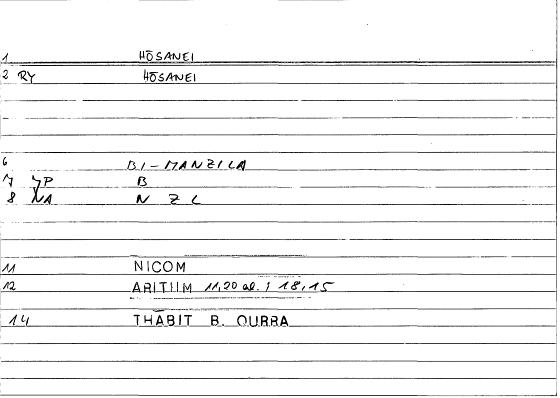 1 HŌSANEI
2 RY HŌSANEI
6 BI-MANZILA
7 YP B
8 NA N Z L
11 NICOM
12 ARITHM 11,20 al. ; 18,15
14 THĀBIT B. QURRA